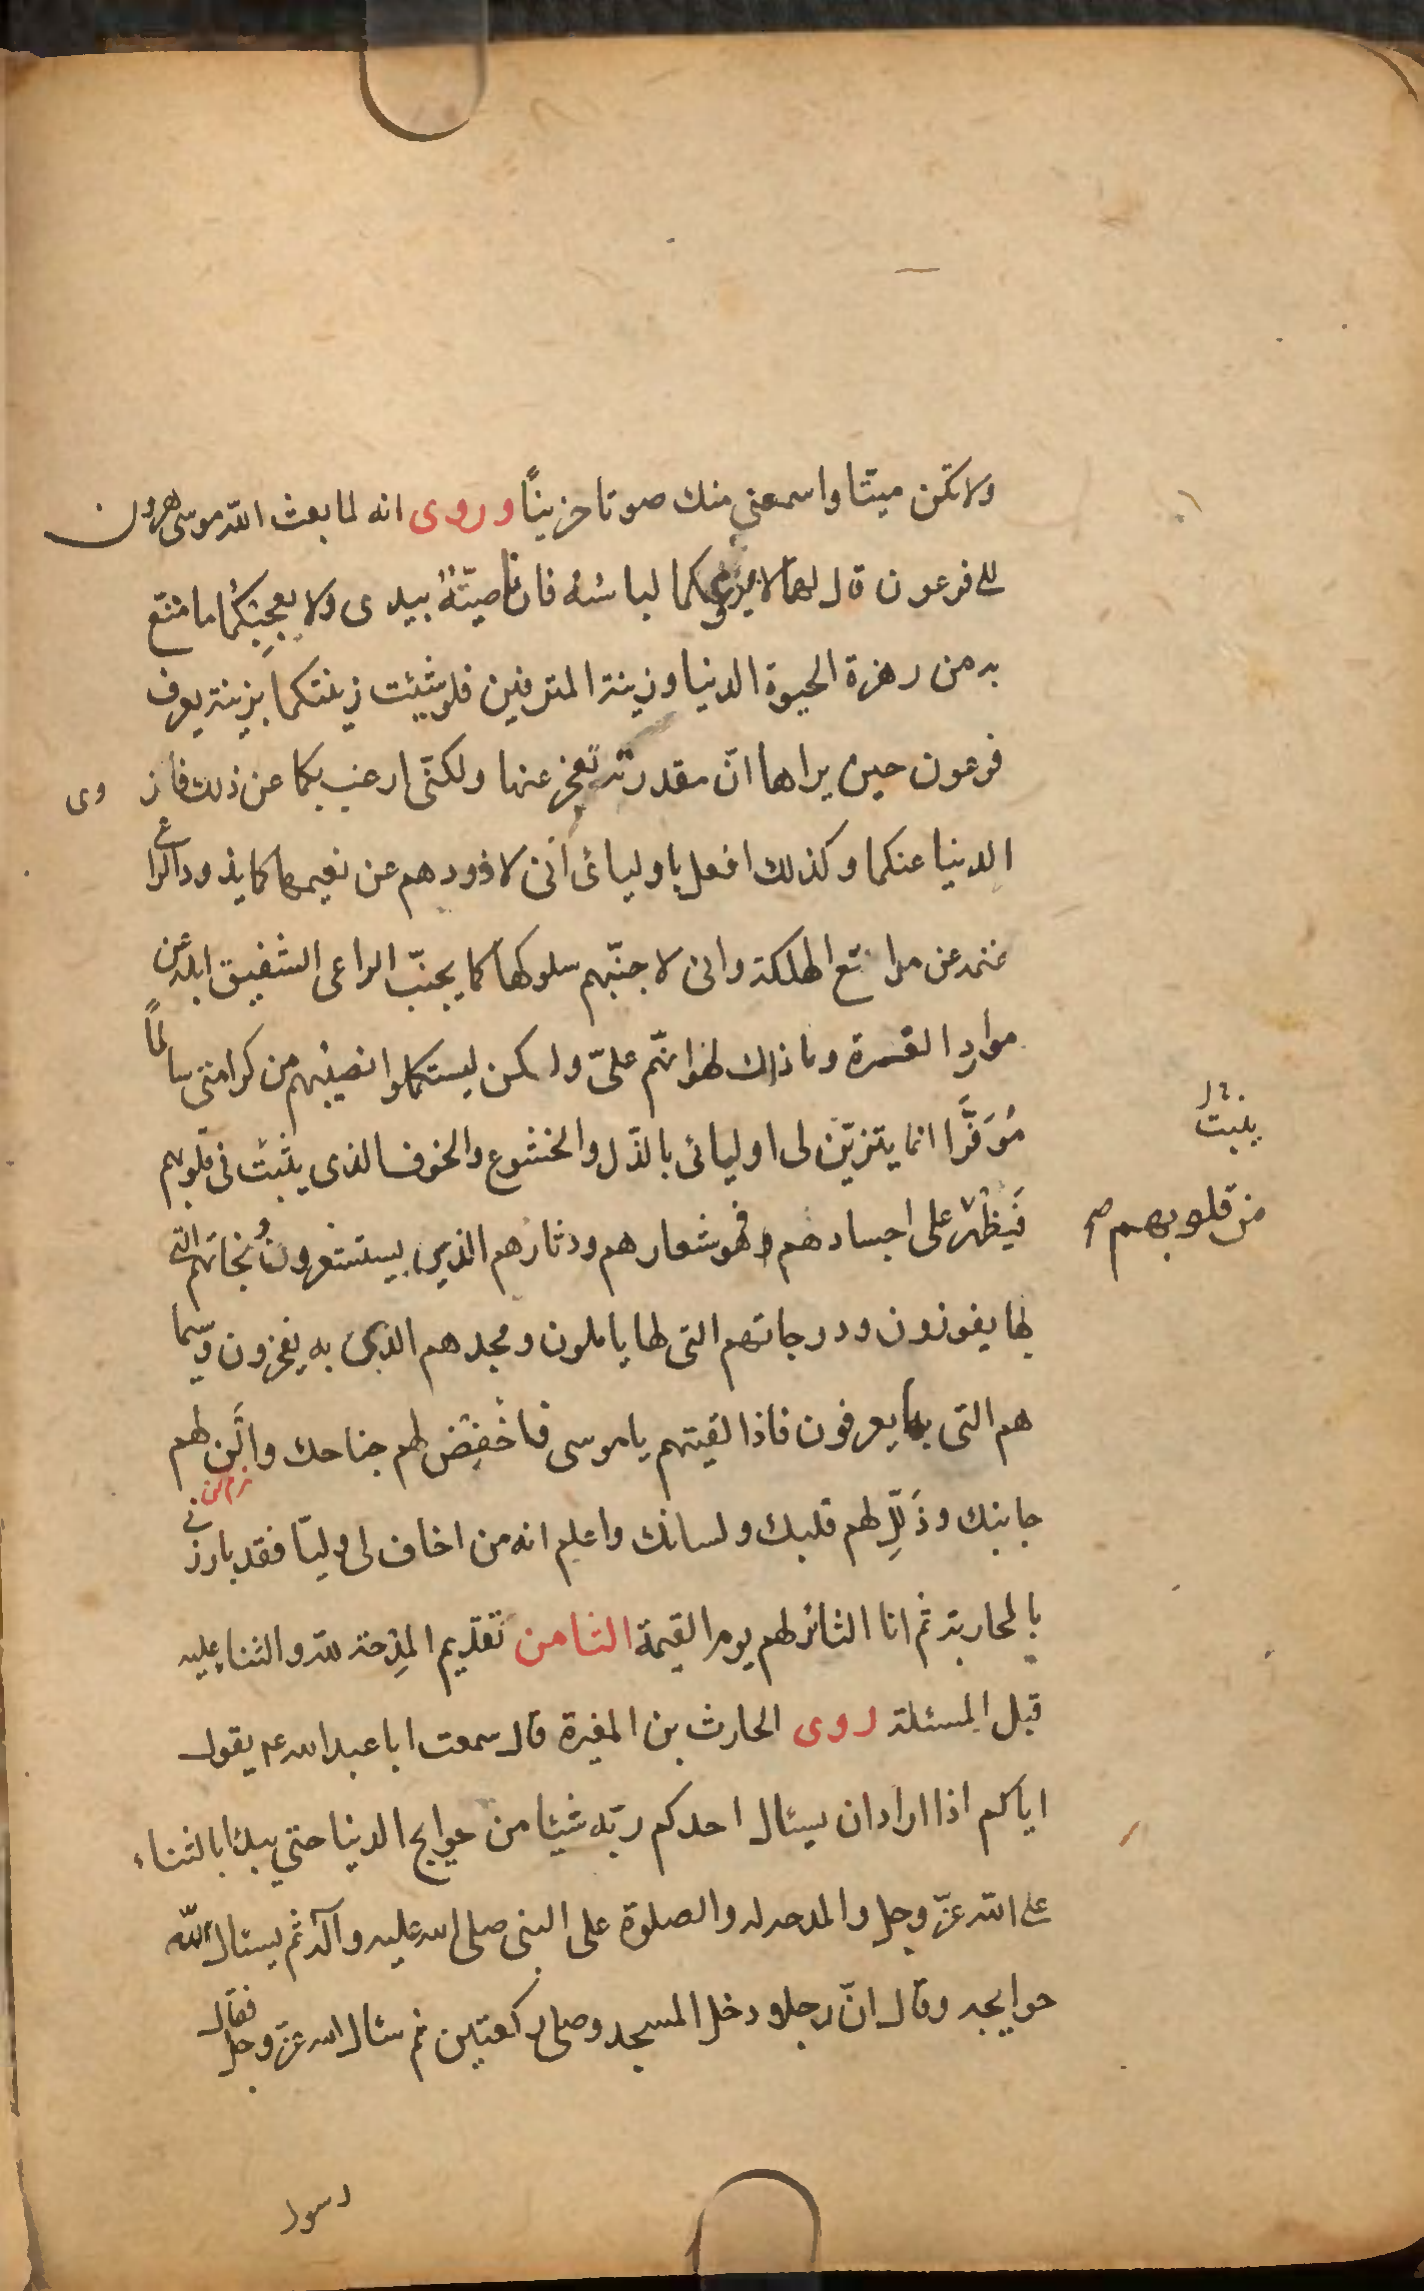 ولا تكن ميتا واسمعني منك صوتا حزينًا وروى انه لما بعث الله موسى وهرون
الى فرعون قال لهما لا يروعكما لباسُهُ فان ناصيتَهُ بيدى ولا يعجِبَنّكما ما متّع
به من زهرة الحيوة الدنيا وزينة المترفين فلو شئت زينتكما بزينة يعرف
فرعون حين يراها انّ مقدرته تعجز عنها ولكنّى ارغب بكما عن ذلك فاز وى
الدنيا عنكما وكذلك افعل باوليائى انى لاذودهم عن نعيمها كما يذود الراعى
غنمه عن مراتع الهلكة وانى لاجنّبهم سلوكها كما يجنّب الراعى الشفيق ابله عن
موارد القسرة وما ذلك لهوانهم علىّ ولكن ليستكملوا نصيبهم من كرامتى سالمًا
مُوَفَّرًا انما يتزيّن لى اوليائى بالذّل والخشوع والخوف الذى يثبت فى قلوبهم
فَيَظْهَرُ على اجسادهم فهو شعارهم ودثارهم الذى يستشعرون ونجاتهم التى
بها يفوزون ودرجاتهم التى لها ياملون ومجدهم الذى به يفخرون وسيما
هم التى بها يعرفون فاذا لقيتهم يا موسى فاخْفِضْ لهم جناحك والَن لهم
جانبك وذَلِّل لهم قلبك ولسانك واعلم انه من اخاف لى وليّا فقد بارزنى
بالمحاربة ثم انا الثائر لهم يوم القيمة الثامن تقديم المِدْحة لله والثناء عليه
قبل المسئلة روى الحارث بن المغيرة قال سمعت ابا عبد الله ع يقول
اياكم اذا اراد ان يسئال احدكم ربّه شيئا من حوايج الدنيا حتى يبدأ بالثناء
على الله عزّ وجل والمدحه له والصلوة على النبى صلى الله عليه وآله ثم يسئال الله
حوايجه وقال انّ رجلا دخل المسجد وصلى ركعتين ثم سئال الله عزّ وجل فقال
ينبت
من قلوبهم
رسول